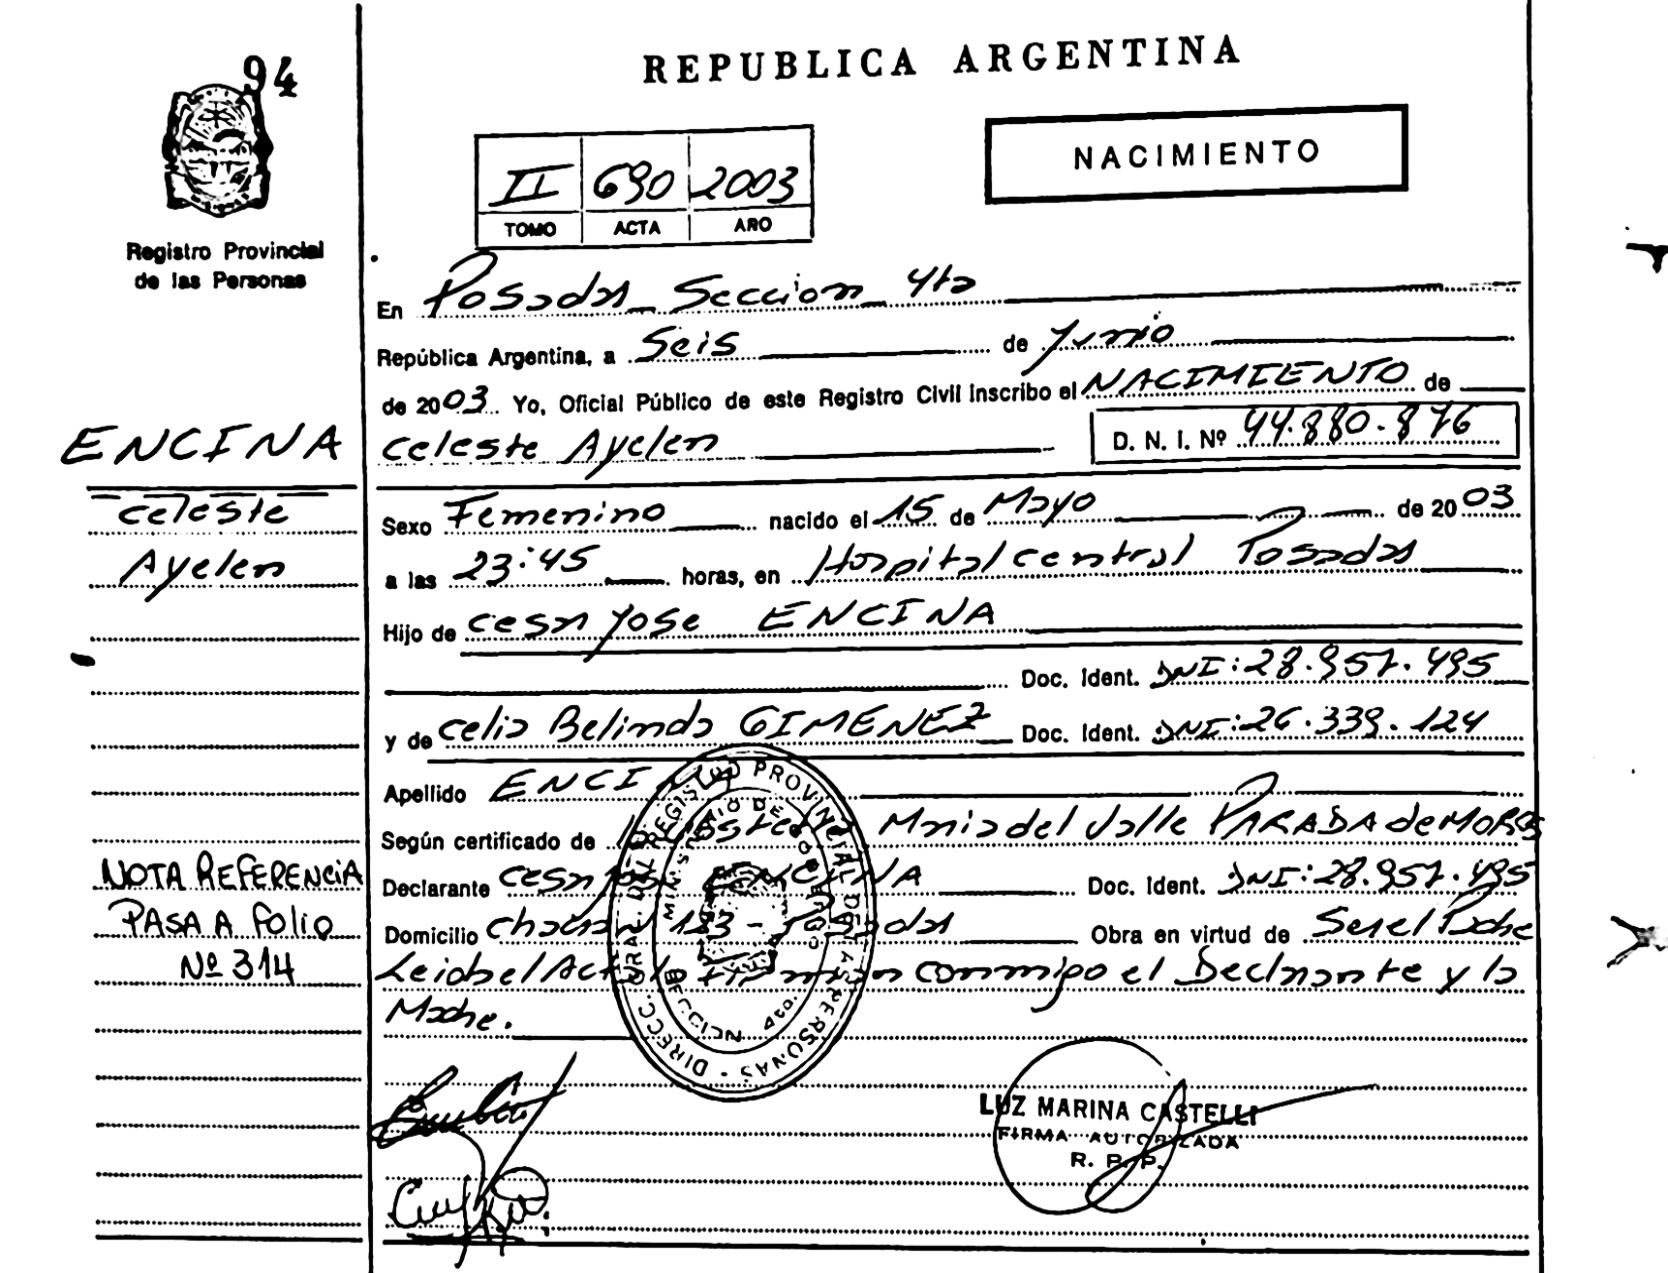 94
REPUBLICA ARGENTINA
NACIMIENTO
II 690 2003
TOMO ACTA AÑO
Registro Provincial
de las Personas
En Posadas Seccion 4ta
República Argentina, a Seis de Junio
de 2003 Yo, Oficial Público de este Registro Civil inscribo el NACIMIENTO de
ENCINA
Celeste Ayelen D. N. I. Nº 44.880.876
Celeste
Ayelen
Sexo Femenino nacido el 15 de Mayo de 2003
a las 23:45 horas, en Hospital central Posadas
Hijo de Cesar Jose ENCINA
Doc. Ident. DNI: 28.957.495
y de Celia Belinda GIMENEZ Doc. Ident. DNI: 26.339.124
Apellido ENCINA
Según certificado de Maria del Valle PARADA de MORES
Declarante Cesar Jose ENCINA Doc. Ident. DNI: 28.957.495
Domicilio 183 - Posadas Obra en virtud de Ser el Padre
Leida el Acta la firman conmigo el Declarante y la
Madre.
NOTA REFERENCIA
PASA A Folio
Nº 314
DIRECC. GRAL. DEL REGISTRO PROVINCIAL DE LAS PERSONAS
MINISTERIO DE GOBIERNO
LUZ MARINA CASTELLI
FIRMA AUTORIZADA
R. P. P.